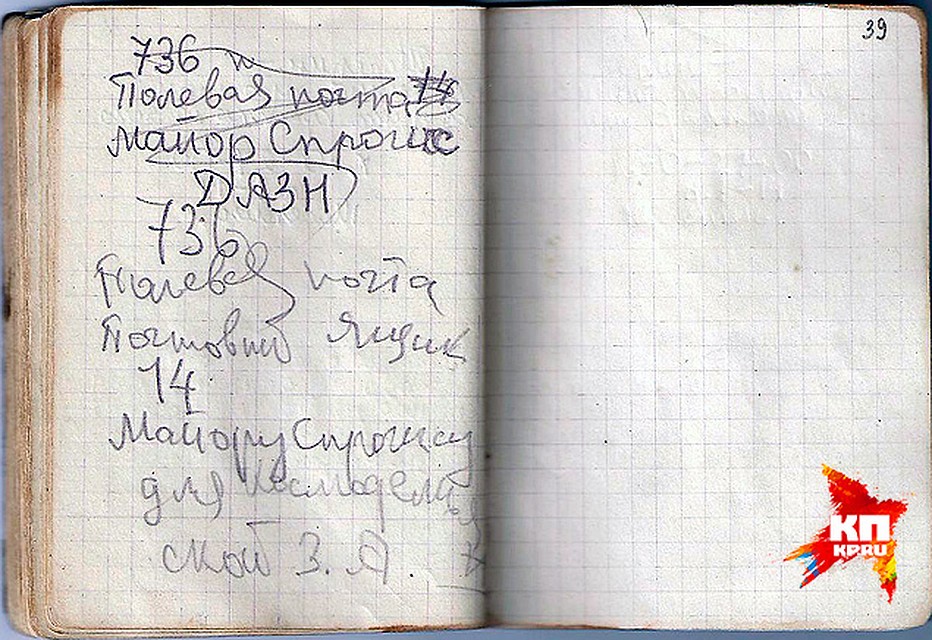 736 п
Полевая почта
майор Спрогис
ДАЗН
736
Полевая почта
Почтовый Ящик
14
Майору Спрогису
для Космодемья
ской З. А
39
КП
KP.RU